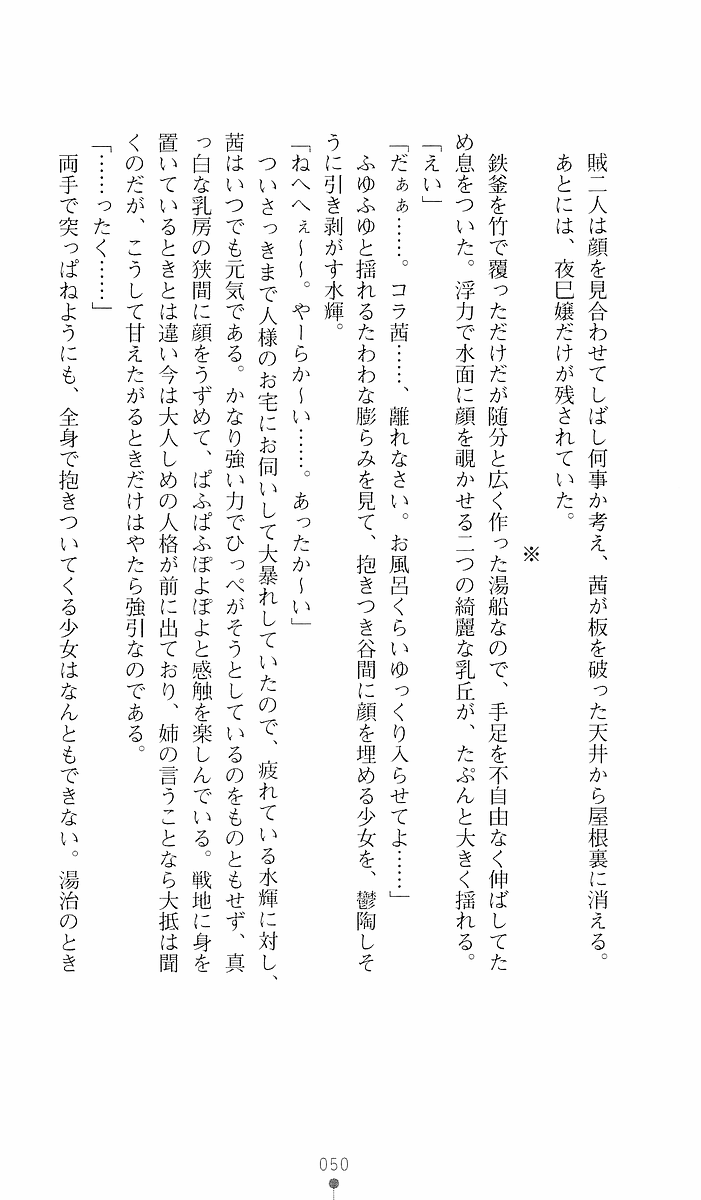 賊二人は顔を見合わせてしばし何事か考え、茜が板を破った天井から屋根裏に消える。
あとには、夜巳嬢だけが残されていた。
※
鉄釜を竹で覆っただけだが随分と広く作った湯船なので、手足を不自由なく伸ばしてた
め息をついた。浮力で水面に顔を覗かせる二つの綺麗な乳丘が、たぷんと大きく揺れる。
「えい」
「だぁぁ……。コラ茜……、離れなさい。お風呂くらいゆっくり入らせてよ……」
ふゆふゆと揺れるたわわな膨らみを見て、抱きつき谷間に顔を埋める少女を、鬱陶しそ
うに引き剥がす水輝。
「ねへへぇ～～。やーらか～い……。あったか～い」
ついさっきまで人様のお宅にお伺いして大暴れしていたので、疲れている水輝に対し、
茜はいつでも元気である。かなり強い力でひっぺがそうとしているのをものともせず、真
っ白な乳房の狭間に顔をうずめて、ぱふぱふぽよぽよと感触を楽しんでいる。戦地に身を
置いているときとは違い今は大人しめの人格が前に出ており、姉の言うことなら大抵は聞
くのだが、こうして甘えたがるときだけはやたら強引なのである。
「……ったく……」
両手で突っぱねようにも、全身で抱きついてくる少女はなんともできない。湯治のとき
050